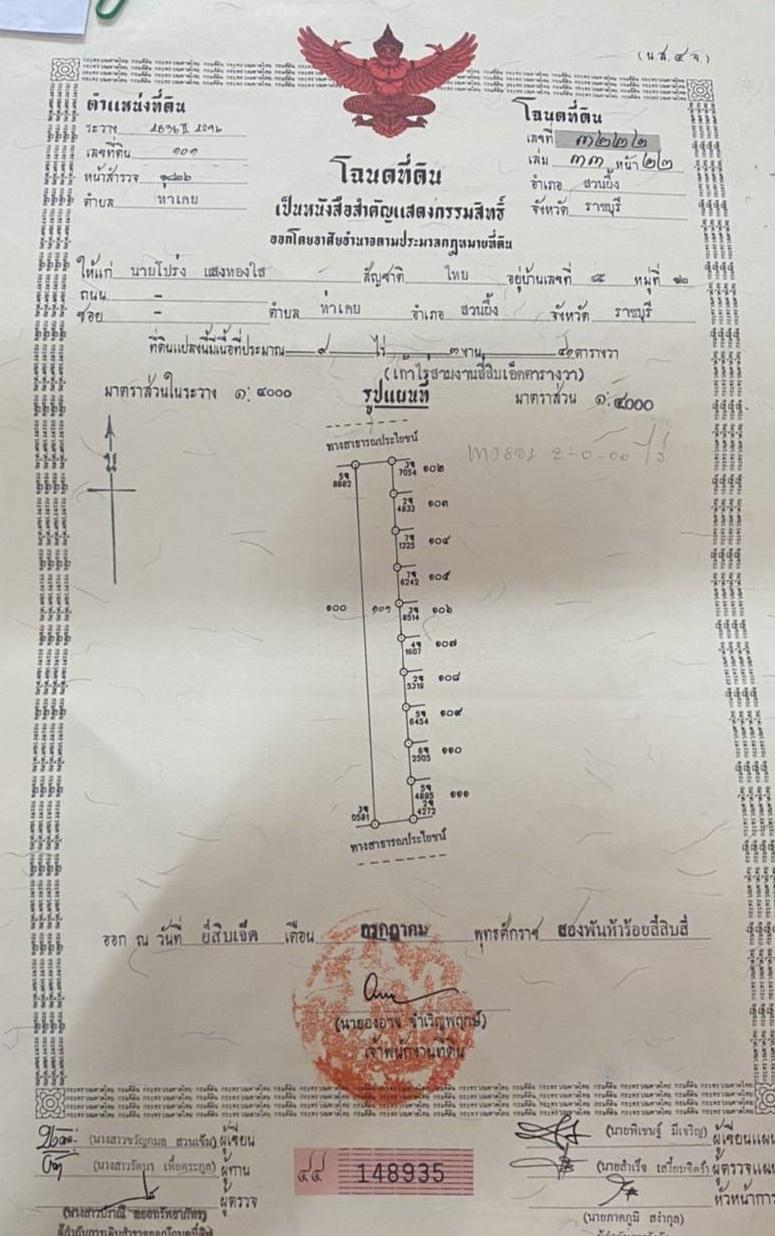 (น.ส. ๔ จ.)
ตำแหน่งที่ดิน
ระวาง 4836 II 1296
เลขที่ดิน ๑๐๑
หน้าสำรวจ
ตำบล ท่าเคย
โฉนดที่ดิน
เลขที่ ๓๒๒๒
เล่ม ๓๓ หน้า ๒๒
อำเภอ สวนผึ้ง
จังหวัด ราชบุรี
โฉนดที่ดิน
เป็นหนังสือสำคัญแสดงกรรมสิทธิ์
ออกโดยอาศัยอำนาจตามประมวลกฎหมายที่ดิน
ให้แก่ นายโปร่ง แสงทองใส สัญชาติ ไทย อยู่บ้านเลขที่ ๘๕ หมู่ที่ ๑๐
ถนน –
ซอย – ตำบล ท่าเคย อำเภอ สวนผึ้ง จังหวัด ราชบุรี
ที่ดินแปลงนี้มีเนื้อที่ประมาณ ๙ ไร่ ๓ งาน ๔๑ ตารางวา
(เก้าไร่สามงานสี่สิบเอ็ดตารางวา)
มาตราส่วนในระวาง ๑: ๔๐๐๐ รูปแผนที่ มาตราส่วน ๑: ๔๐๐๐
น
ทางสาธารณประโยชน์
5ฯ
8882
3ฯ
7054 ๑๐๒
2ฯ
4833 ๑๐๓
7ฯ
1325 ๑๐๔
7ฯ
6242 ๑๐๕
๑๐๐ ๑๐๑
3ฯ
8514 ๑๐๖
4ฯ
1607 ๑๐๗
2ฯ
5319 ๑๐๘
5ฯ
6454 ๑๐๙
6ฯ
2505 ๑๑๐
5ฯ
4895 ๑๑๑
2ฯ
4272
3ฯ
0581
ทางสาธารณประโยชน์
ออก ณ วันที่ ยี่สิบเจ็ด เดือน กรกฎาคม พุทธศักราช สองพันห้าร้อยสี่สิบสี่
(นายองอาจ จำเริญพฤกษ์)
เจ้าพนักงานที่ดิน
(นางสาวขวัญกมล สวนเข้ม) ผู้เขียน
ผู้ทาน
ผู้ตรวจ
๔๔ 148935
(นายพิเชษฐ์ มีเจริญ) ผู้เขียนแผน
ผู้ตรวจแผน
หัวหน้าการ
(นายภาคภูมิ สง่ากุล)